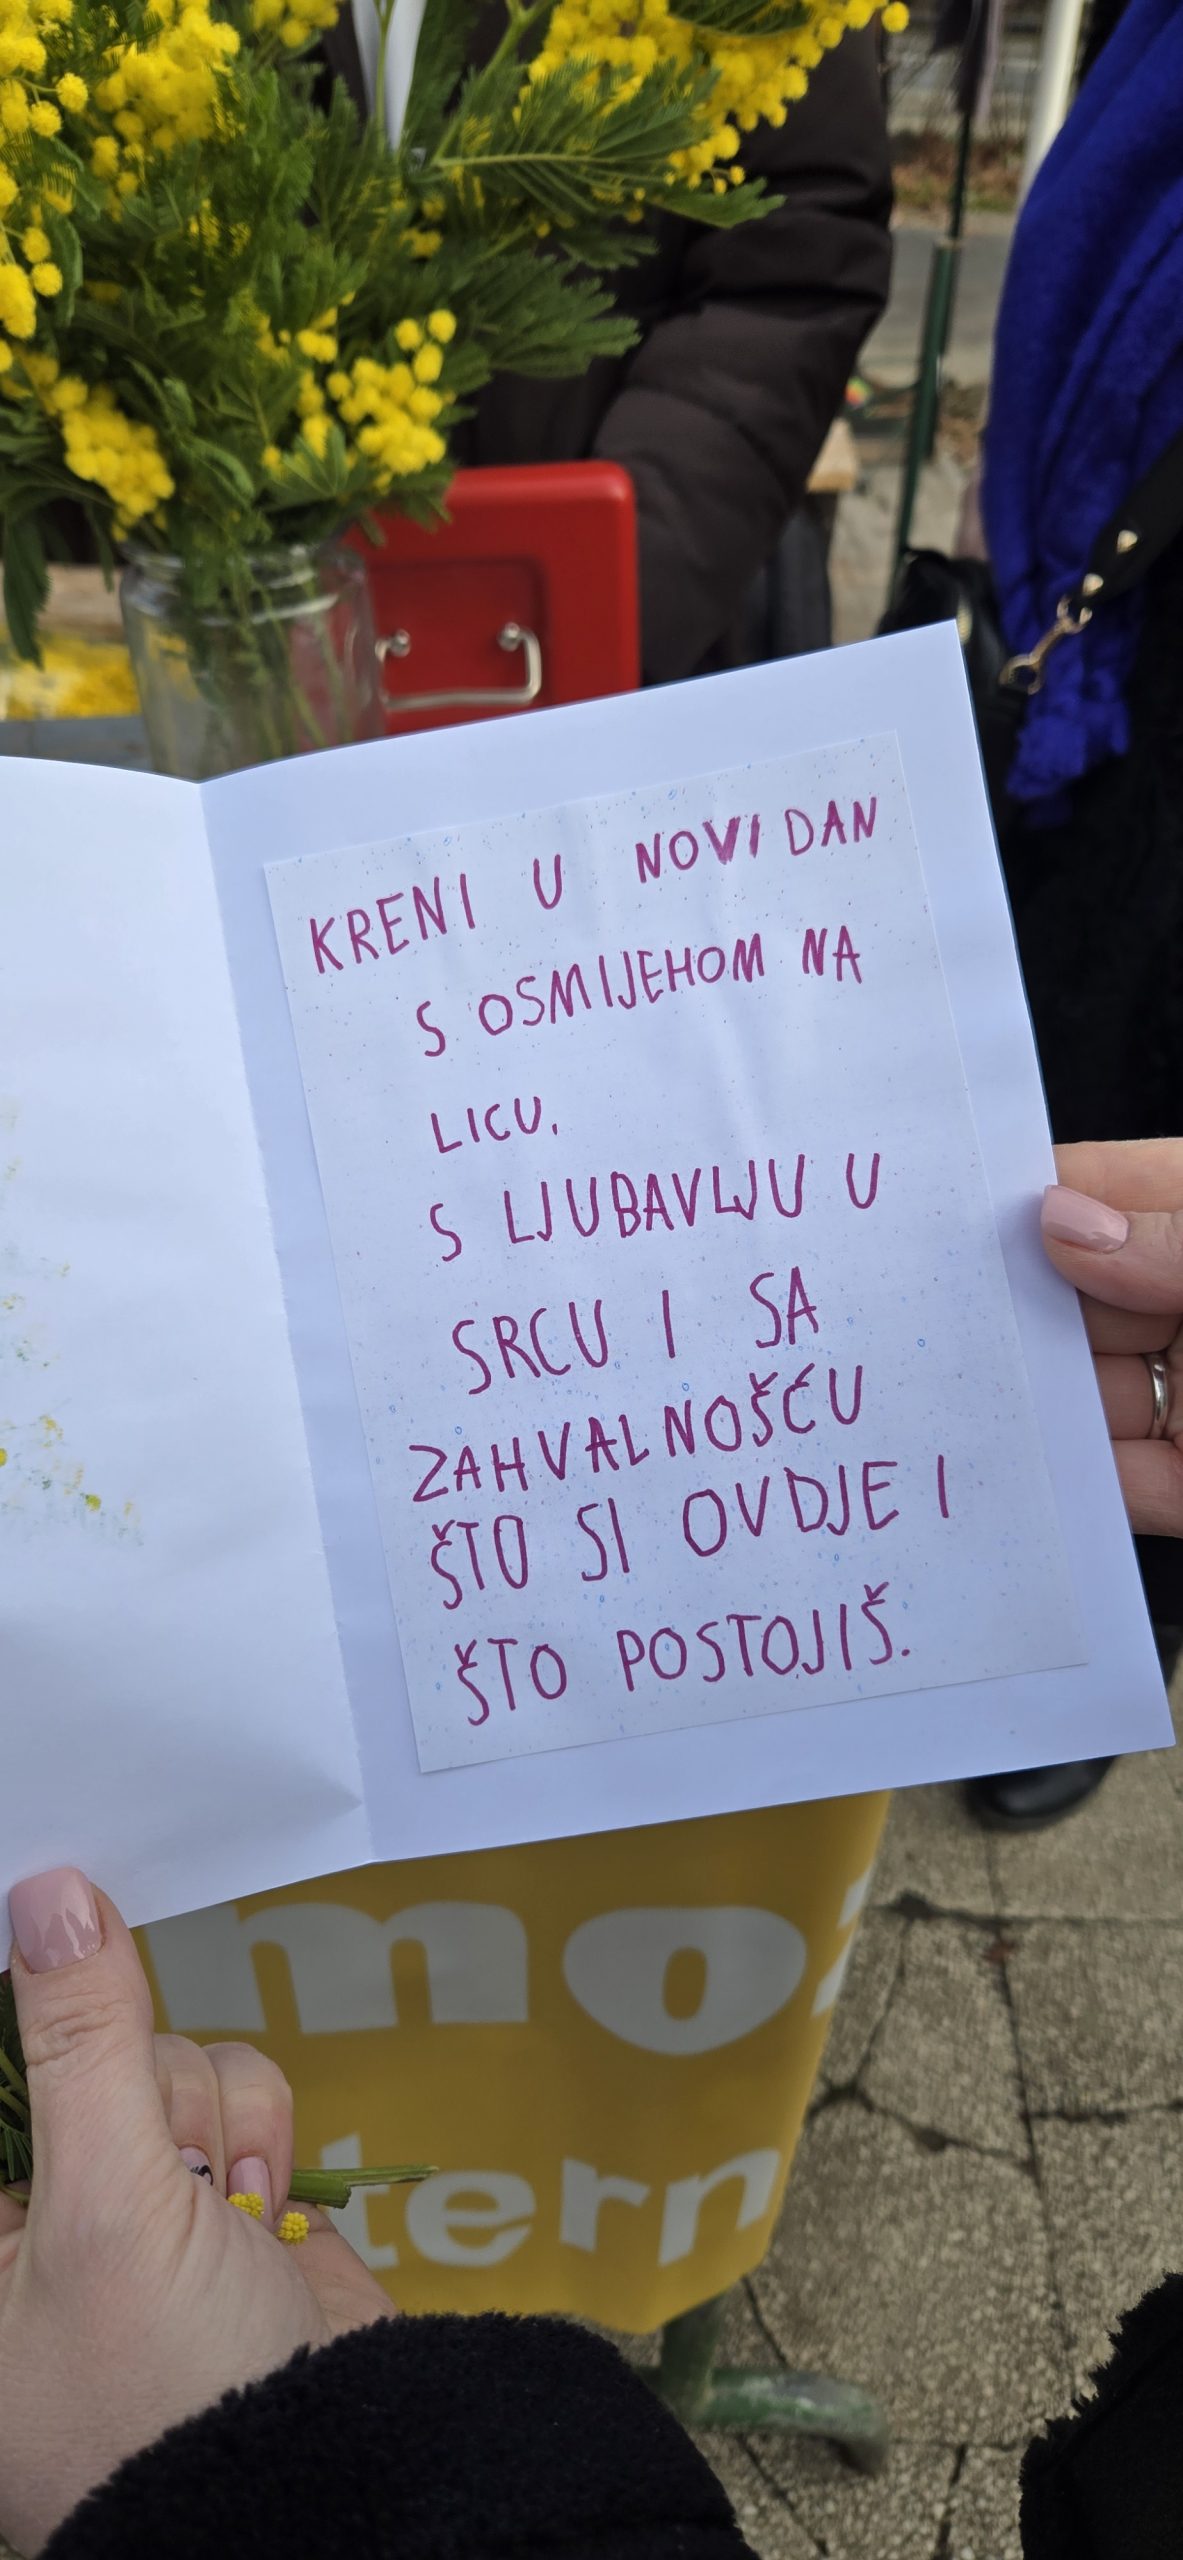 KRENI U NOVI DAN
S OSMIJEHOM NA
LICU,
S LJUBAVLJU U
SRCU I SA
ZAHVALNOŠĆU
ŠTO SI OVDJE I
ŠTO POSTOJIŠ.
mo
tern